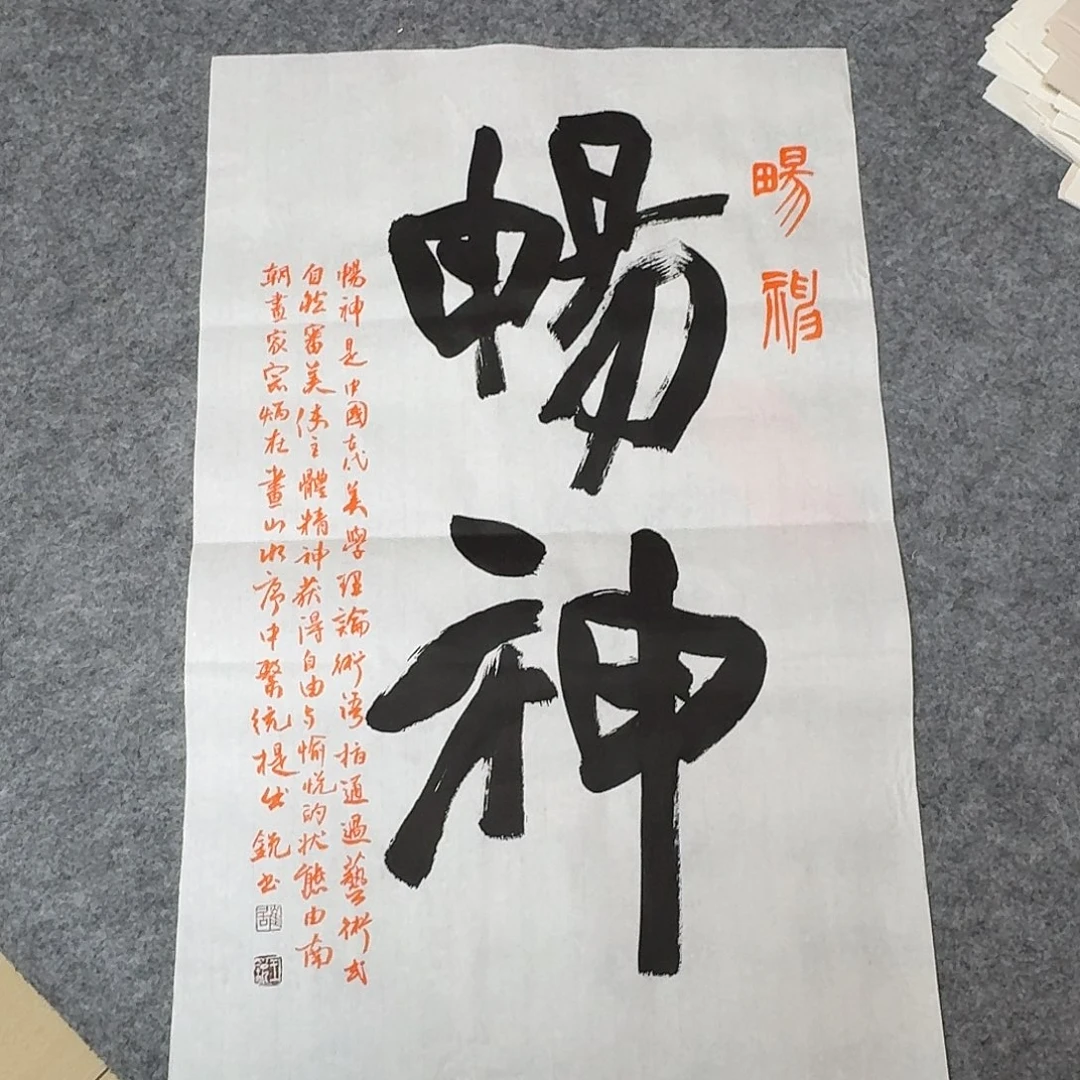 畼神
暢神
暢神是中國古代美學理論術语指通過藝術或
自然審美使主體精神获得自由与愉悦的状態由南
朝畫家宗炳在畫山水序中繫統提出 鋭书